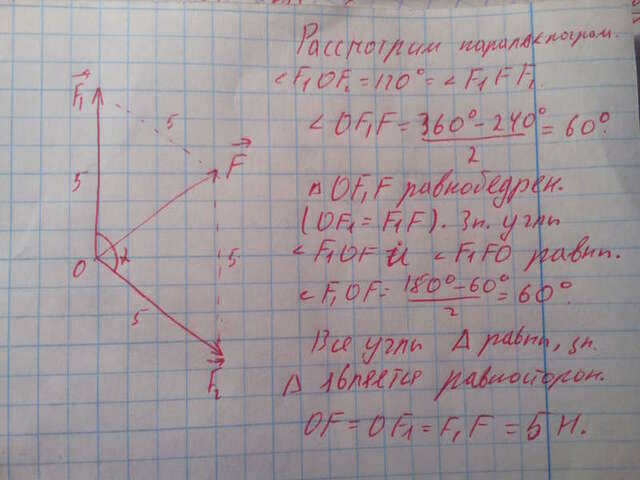 Рассмотрим паралелограм.
∠F₁OF₂ = 120° = ∠F₁FF₂
∠OF₁F = (360° - 240°)/2 = 60°.
△OF₁F равнобедрен.
(OF₁ = F₁F). Зн. углы
∠F₁OF и ∠F₁FO равны.
∠F₁OF = (180° - 60°)/2 = 60°.
Все углы △ равны, зн.
△ является равносторон.
OF = OF₁ = F₁F = 5 Н.
F₁
5
F
5
O
α
5
5
F₂